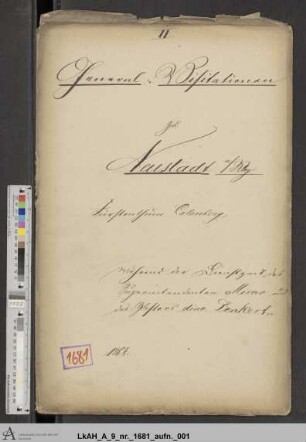 II
General-Visitationen
Neustadt a/Rbg
Fürstenthum Calenberg
Während der Dienstzeit des
Superintendenten
des Pastors
1868.
1681
LkAH_A_9_nr._1681_aufn._001